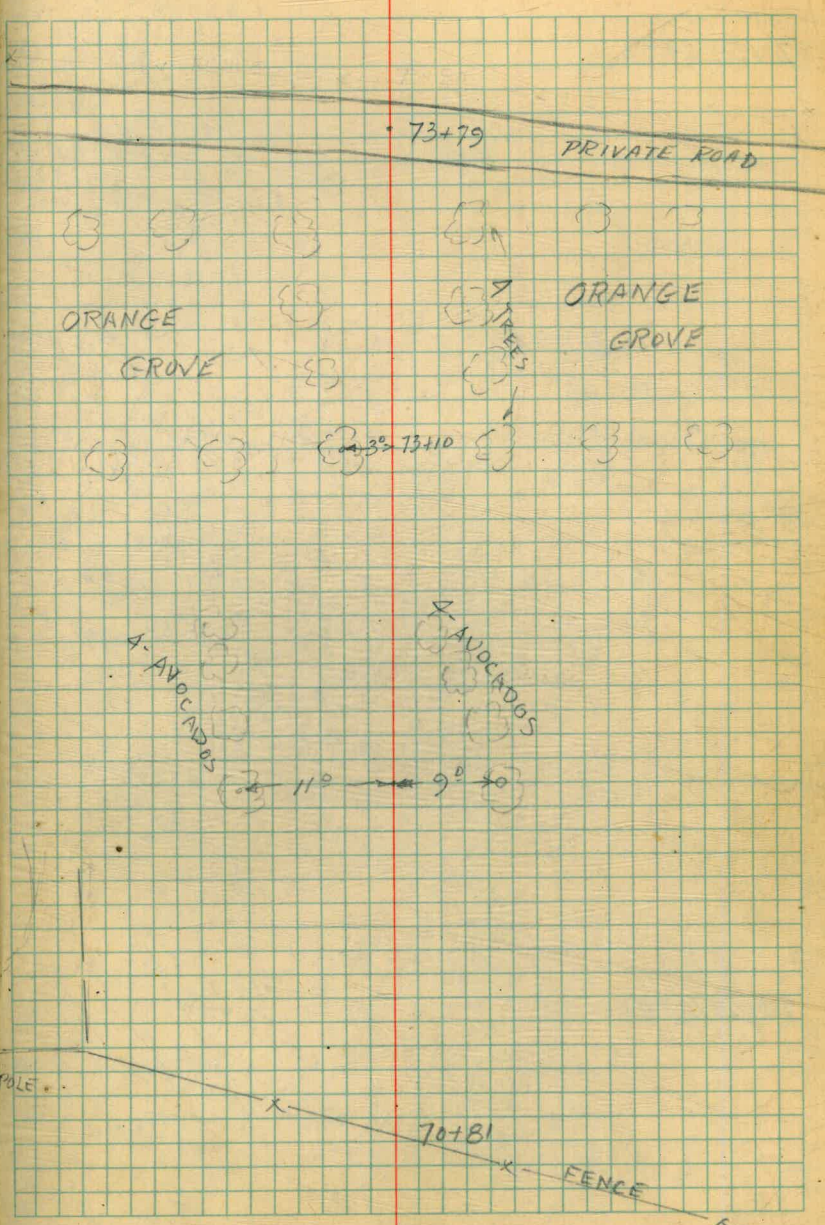 73+79
PRIVATE ROAD
ORANGE
GROVE
4 TREES
ORANGE
GROVE
3⁰ 73+10
4-AVOCADOS
4-AVOCADOS
11⁰
9⁰
POLE
70+81
FENCE